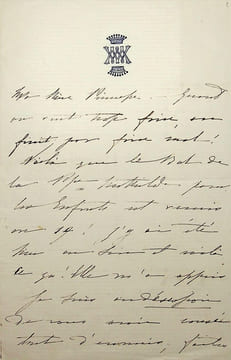 Ma chère Princesse — Quand
on veut trop faire, on
finit par faire mal !
Voilà que le Bal de
la Psse Mathilde pour
les Enfants est remis
au 14 ! J'y ai été
hier au soir et voilà
ce qu'Elle m'a appris
Je suis au désespoir
de vous avoir causée
tant d'ennuis,